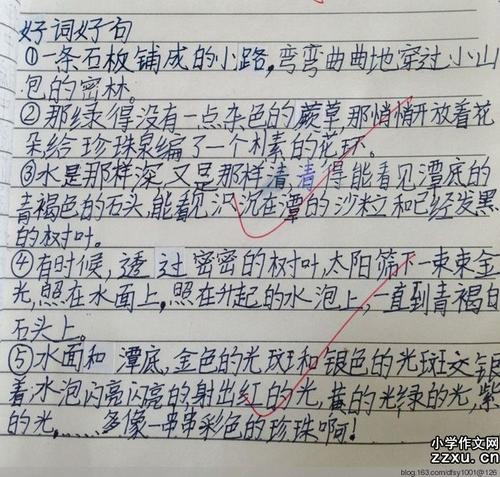 好词好句
①一条石板铺成的小路,弯弯曲曲地穿过小山
包的密林。
②那绿得没有一点杂色的蕨草那悄悄开放着花
朵给珍珠泉编了一个朴素的花环。
③水是那样深,又是那样清,清得能看见潭底的
青褐色的石头,能看见沉在潭的沙粒和已经发黑
的树叶。
④有时候,透过密密的树叶,太阳筛下一束束金
光,照在水面上,照在升起的水泡上,一直到青褐色
石头上。
⑤水面和潭底,金色的光斑和银色的光斑交错
着,水泡闪亮闪亮的射出红的光,黄的光,绿的光,紫
的光,……多像一串串彩色的珍珠啊!
小学作文网
zzxu.cn
blog.163.com/dfsy1001@126